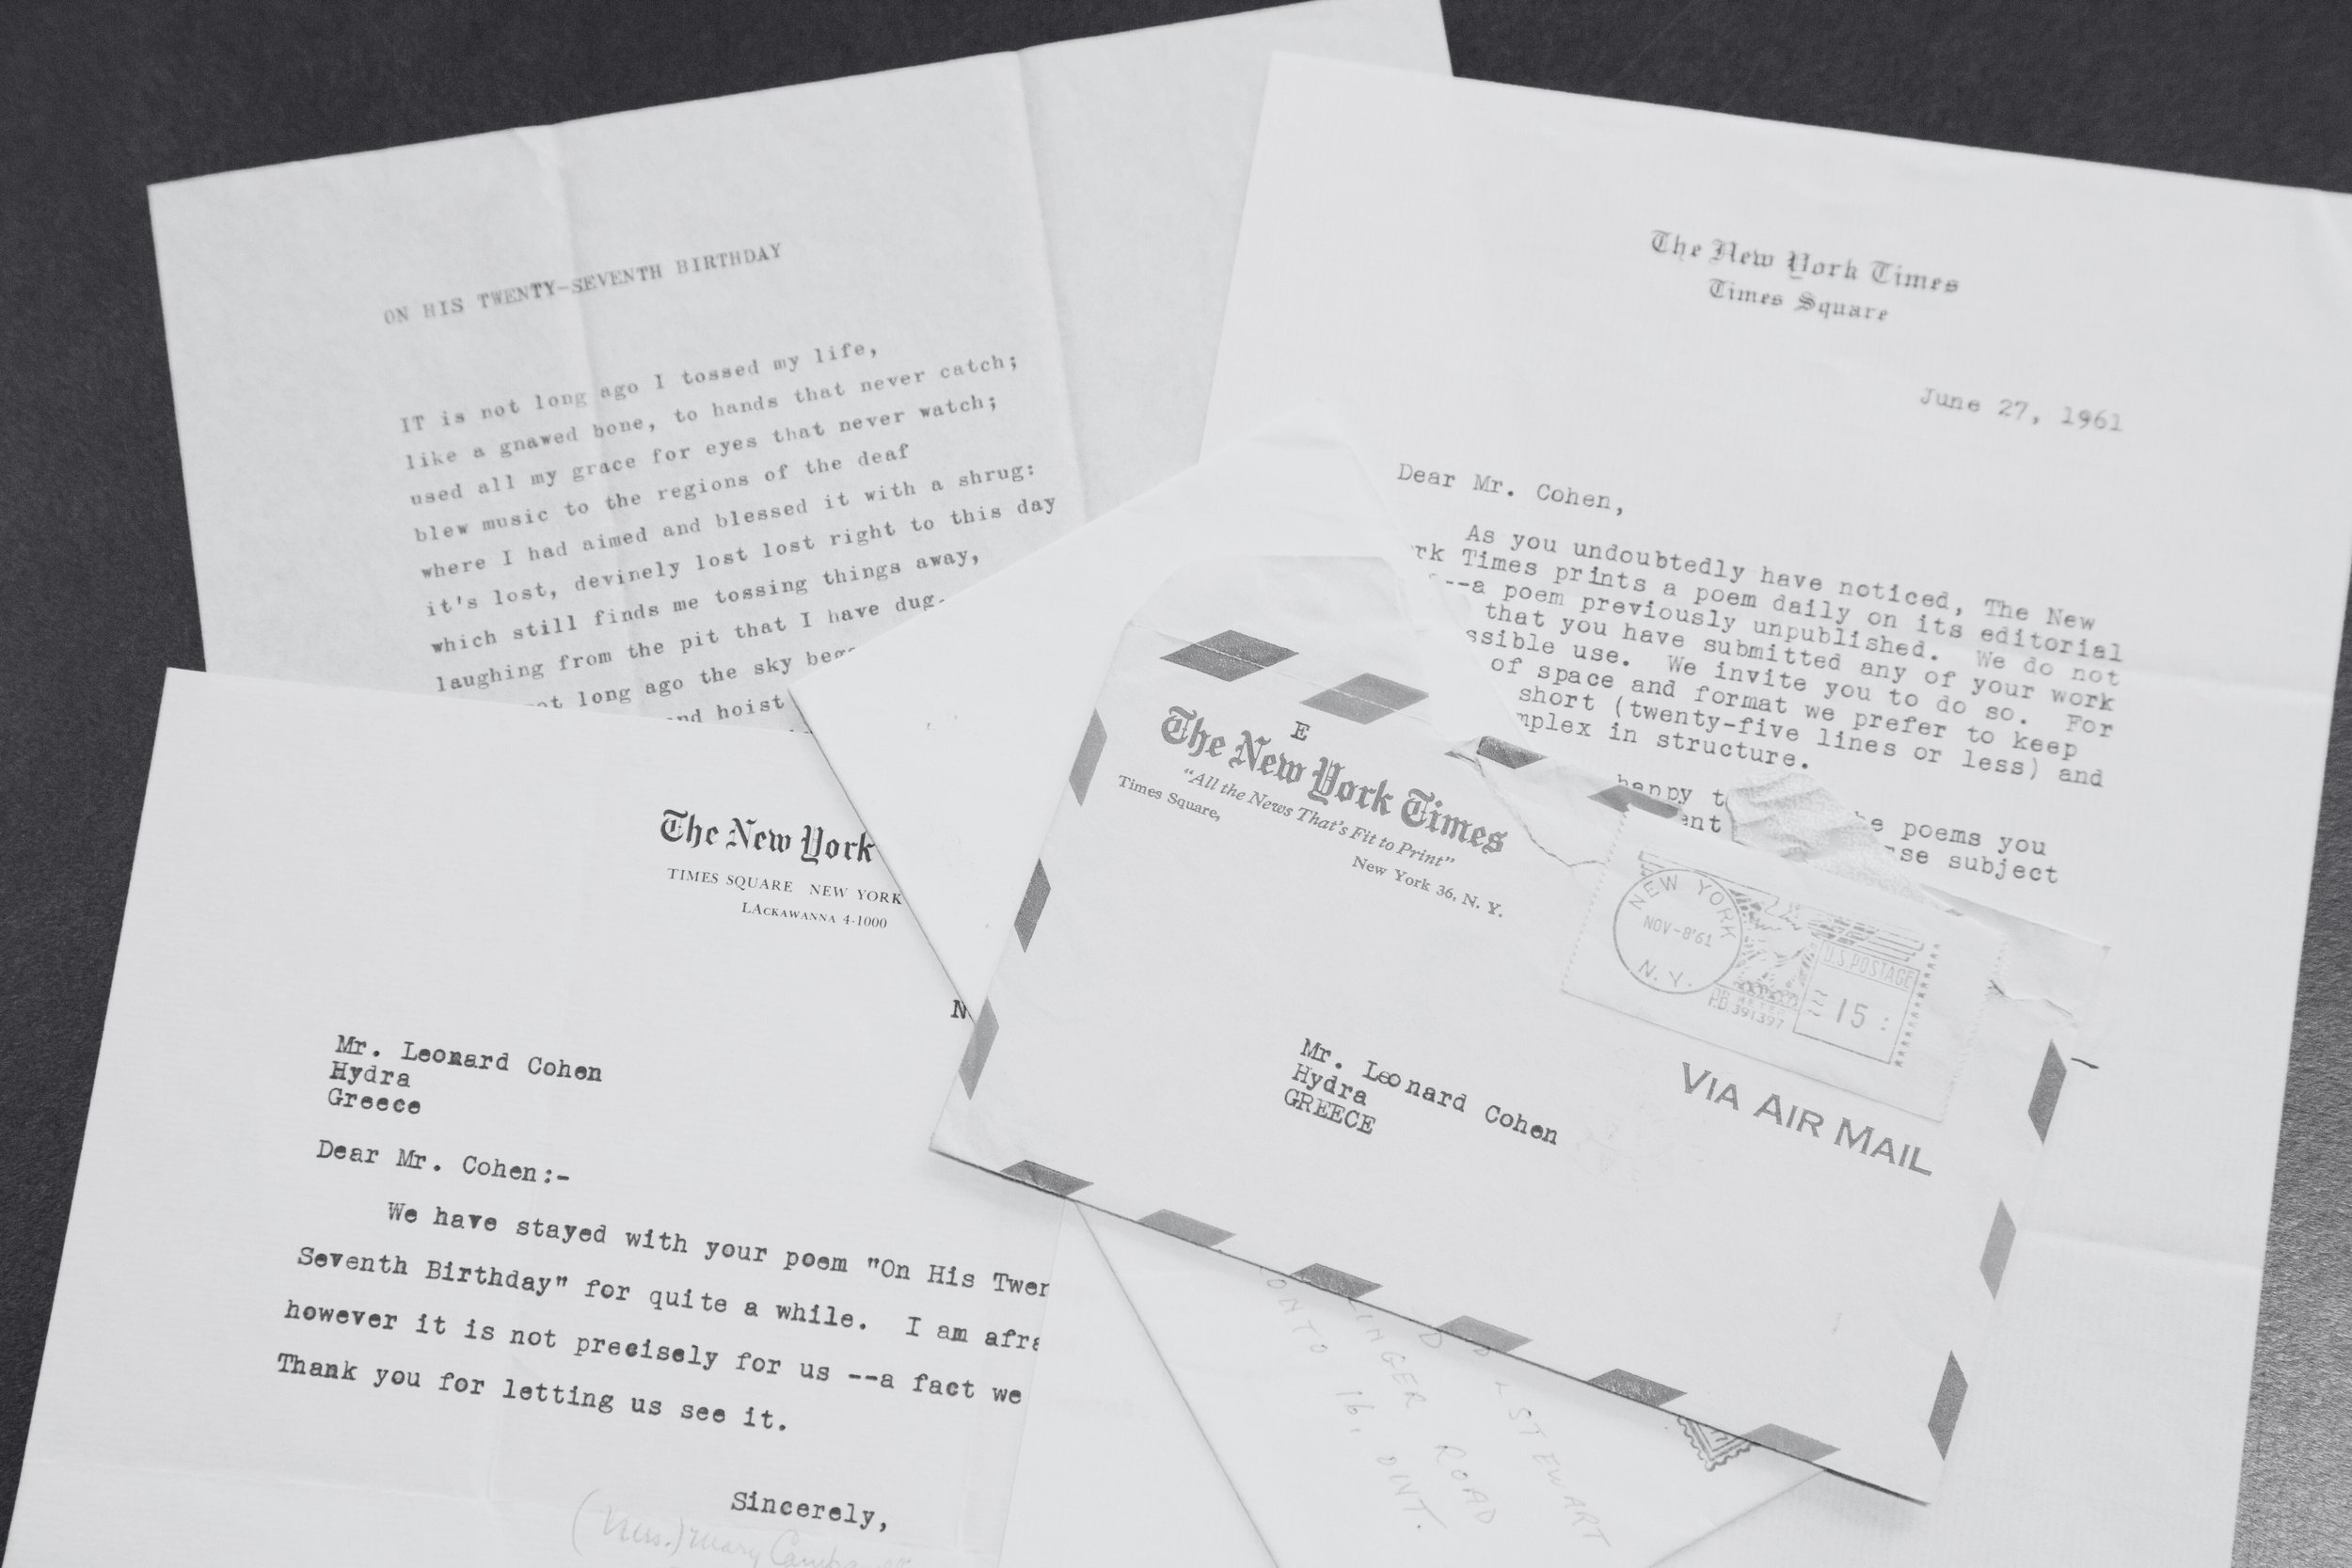 ON HIS TWENTY-SEVENTH BIRTHDAY
IT is not long ago I tossed my life,
like a gnawed bone, to hands that never catch;
used all my grace for eyes that never watch;
blew music to the regions of the deaf
where I had aimed and blessed it with a shrug:
it's lost, devinely lost lost right to this day
which still finds me tossing things away,
laughing from the pit that I have dug.
long ago the sky
hoist
The New York Times
Times Square
June 27, 1961
Dear Mr. Cohen,
As you undoubtedly have noticed, The New
rk Times prints a poem daily on its editorial
--a poem previously unpublished. We do not
that you have submitted any of your work
ssible use. We invite you to do so. For
of space and format we prefer to keep
short (twenty-five lines or less) and
mplex in structure.
happy t
ent he poems you
se subject
The New York
TIMES SQUARE NEW YORK
LACKAWANNA 4-1000
N
Mr. Leonard Cohen
Hydra
Greece
Dear Mr. Cohen:-
We have stayed with your poem "On His Twen
Seventh Birthday" for quite a while. I am afra
however it is not precisely for us --a fact we
Thank you for letting us see it.
Sincerely,
(Mrs.) Mary
E
The New York Times
"All the News That's Fit to Print"
Times Square,
New York 36, N. Y.
NEW YORK
NOV-8'61
N.Y.
U.S. POSTAGE
15
P.B. 391397
VIA AIR MAIL
Mr. Leonard Cohen
Hydra
GREECE
STEWART
INGER ROAD
ONTO 16, ONT.